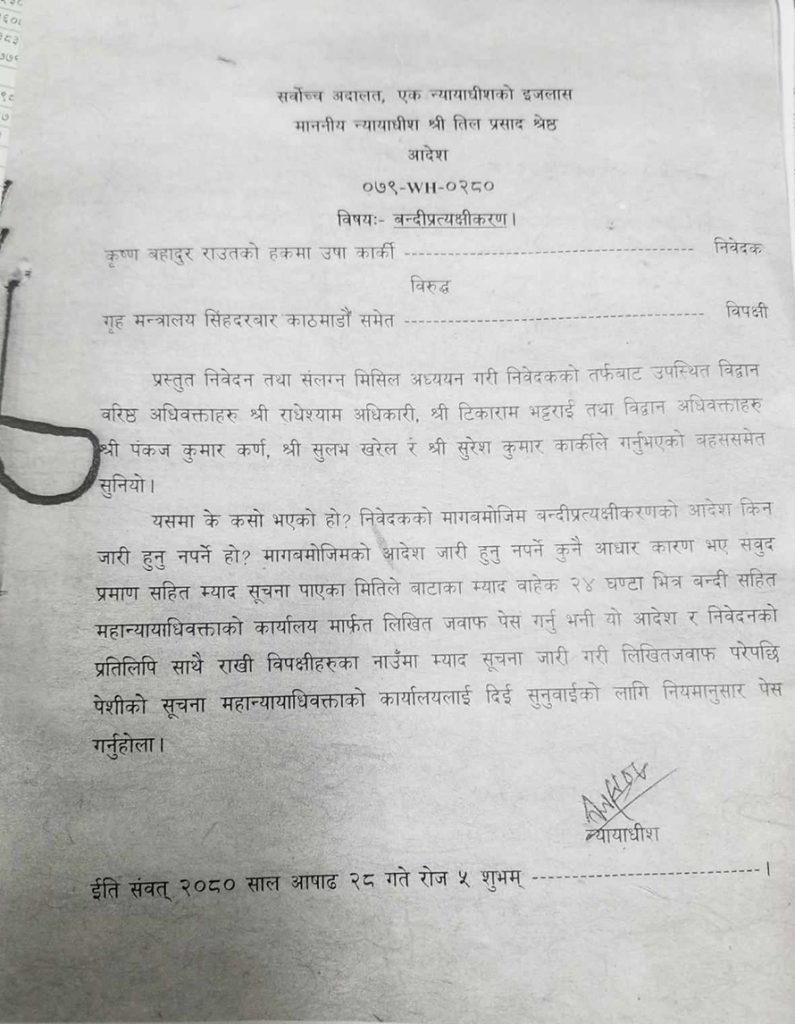 सर्वोच्च अदालत, एक न्यायाधीशको इजलास
माननीय न्यायाधीश श्री तिल प्रसाद श्रेष्ठ
आदेश
०७९-WH-०२८०
विषयः- बन्दीप्रत्यक्षीकरण।
कृष्ण बहादुर राउतको हकमा उषा कार्की ------------------------------------ निवेदक
विरुद्ध
गृह मन्त्रालय सिंहदरबार काठमाडौं समेत -------------------------------------- विपक्षी
प्रस्तुत निवेदन तथा संलग्न मिसिल अध्ययन गरी निवेदकको तर्फबाट उपस्थित विद्वान
वरिष्ठ अधिवक्ताहरु श्री राधेश्याम अधिकारी, श्री टिकाराम भट्टराई तथा विद्वान अधिवक्ताहरु
श्री पंकज कुमार कर्ण, श्री सुलभ खरेल र श्री सुरेश कुमार कार्कीले गर्नुभएको बहससमेत
सुनियो।
यसमा के कसो भएको हो? निवेदकको मागबमोजिम बन्दीप्रत्यक्षीकरणको आदेश किन
जारी हुनु नपर्ने हो? मागबमोजिमको आदेश जारी हुनु नपर्ने कुनै आधार कारण भए सबुद
प्रमाण सहित म्याद सूचना पाएका मितिले बाटाका म्याद वाहेक २४ घण्टा भित्र बन्दी सहित
महान्यायाधिवक्ताको कार्यालय मार्फत लिखित जवाफ पेस गर्नु भनी यो आदेश र निवेदनको
प्रतिलिपि साथै राखी विपक्षीहरुका नाउँमा म्याद सूचना जारी गरी लिखितजवाफ परेपछि
पेशीको सूचना महान्यायाधिवक्ताको कार्यालयलाई दिई सुनुवाईको लागि नियमानुसार पेस
गर्नुहोला।
न्यायाधीश
ईति संवत् २०८० साल आषाढ २८ गते रोज ५ शुभम् ----------------------------।